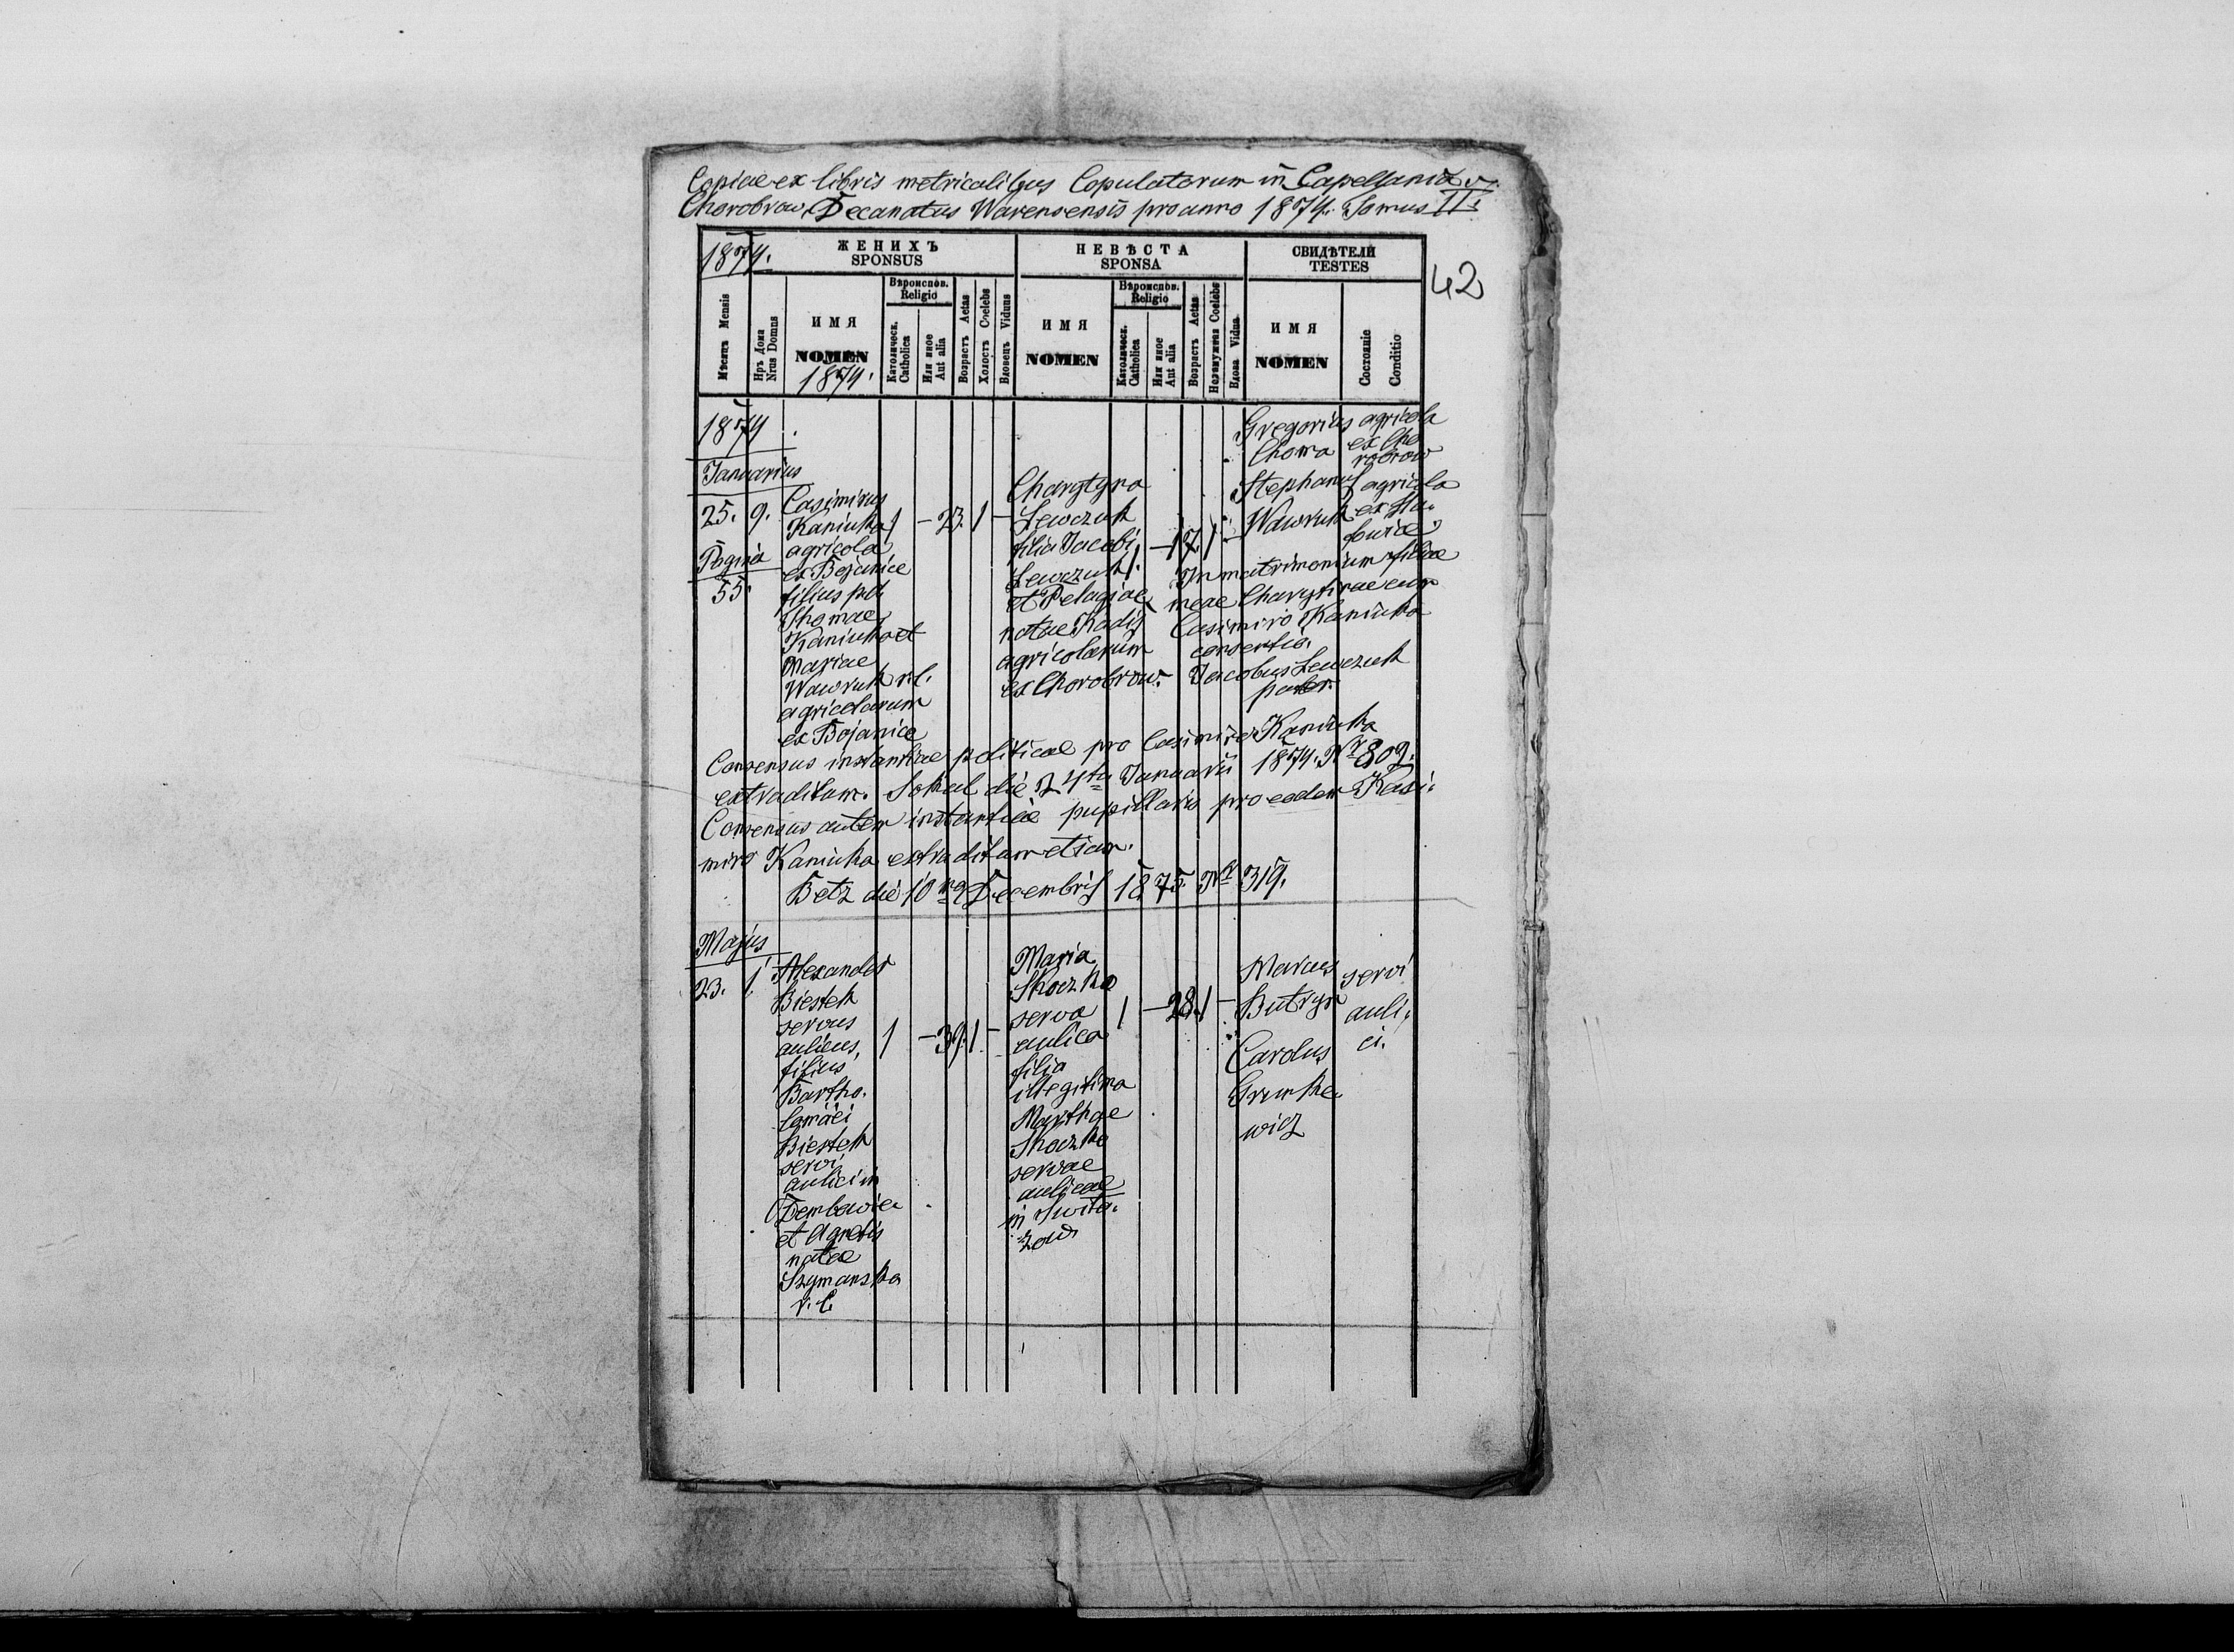 Copiae ex libris metricalibus Copulatorum in Capellania
Chorobrow, Decanatus Warensensis pro anno 1874. Tomus II.
42
1874.
ЖЕНИХЪ
SPONSUS
НЕВѢСТА
SPONSA
СВИДѢТЕЛИ
TESTES
Мѣсяцъ Mensis
Нръ Дома
Nrus Domus
ИМЯ
NOMEN
1874.
Вѣроиспов.
Religio
Католическ.
Catholica
Или иное
Aut alia
Возрастъ Aetas
Холостъ Coelebs
Вдовецъ Viduus
ИМЯ
NOMEN
Вѣроиспов.
Religio
Католическ.
Catholica
Или иное
Aut alia
Возрастъ Aetas
Незамужная Coelebs
Вдова Vidua
ИМЯ
NOMEN
Состояніе
Conditio
1874
Januarius
25. 9.
Pagina
55.
Casimirus
Kaniuka
agricola
ex Bojanice
filius pd.
Thomae
Kaniuka et
Mariae
Wawruk r.l.
agricolarum
ex Bojanice
1 - 23. 1 -
Charytyna
Lewczuk
filia Jacobi
Lewczuk
et Pelagiae
natae Hadij
agricolarum
ex Chorobrow.
1. - 17. 1 -
Gregorius
Choma
agricola
ex Cho
robrow
Stephanus
Wawruk
agricola
ex
In matrimonium filiae
meae Charytinae cum
Casimiro Kaniuka
consentio.
Jacobus Lewczuk
pater.
Consensus instantiae politicae pro Casimiro Kaniuka
extraditum. Sokal die 24ta Januarii 1874. Nr 802.
Consensus autem instantiae pupillaris pro eodem Kasi-
miro Kaniuka extraditum etiam.
Betz die 10ma Decembris 1875 Nr 319.
Majus
23. 1.
Alexander
Biestek
servus
aulicus,
filius
Bartho.
lamäei
Biestek
servi
aulici in
Dembowiec
et Agnetis
natae
Szymanska
r. l.
1 - 39. 1. -
Maria
Skoczko
serva
aulica
filia
illegitima
Marthae
Skoczko
servae
aulicae
in Swita.
zow
1 - 28. 1 -
Marcus
Butryn
Carolus
Grunke.
wicz
servi
auli.
ci.